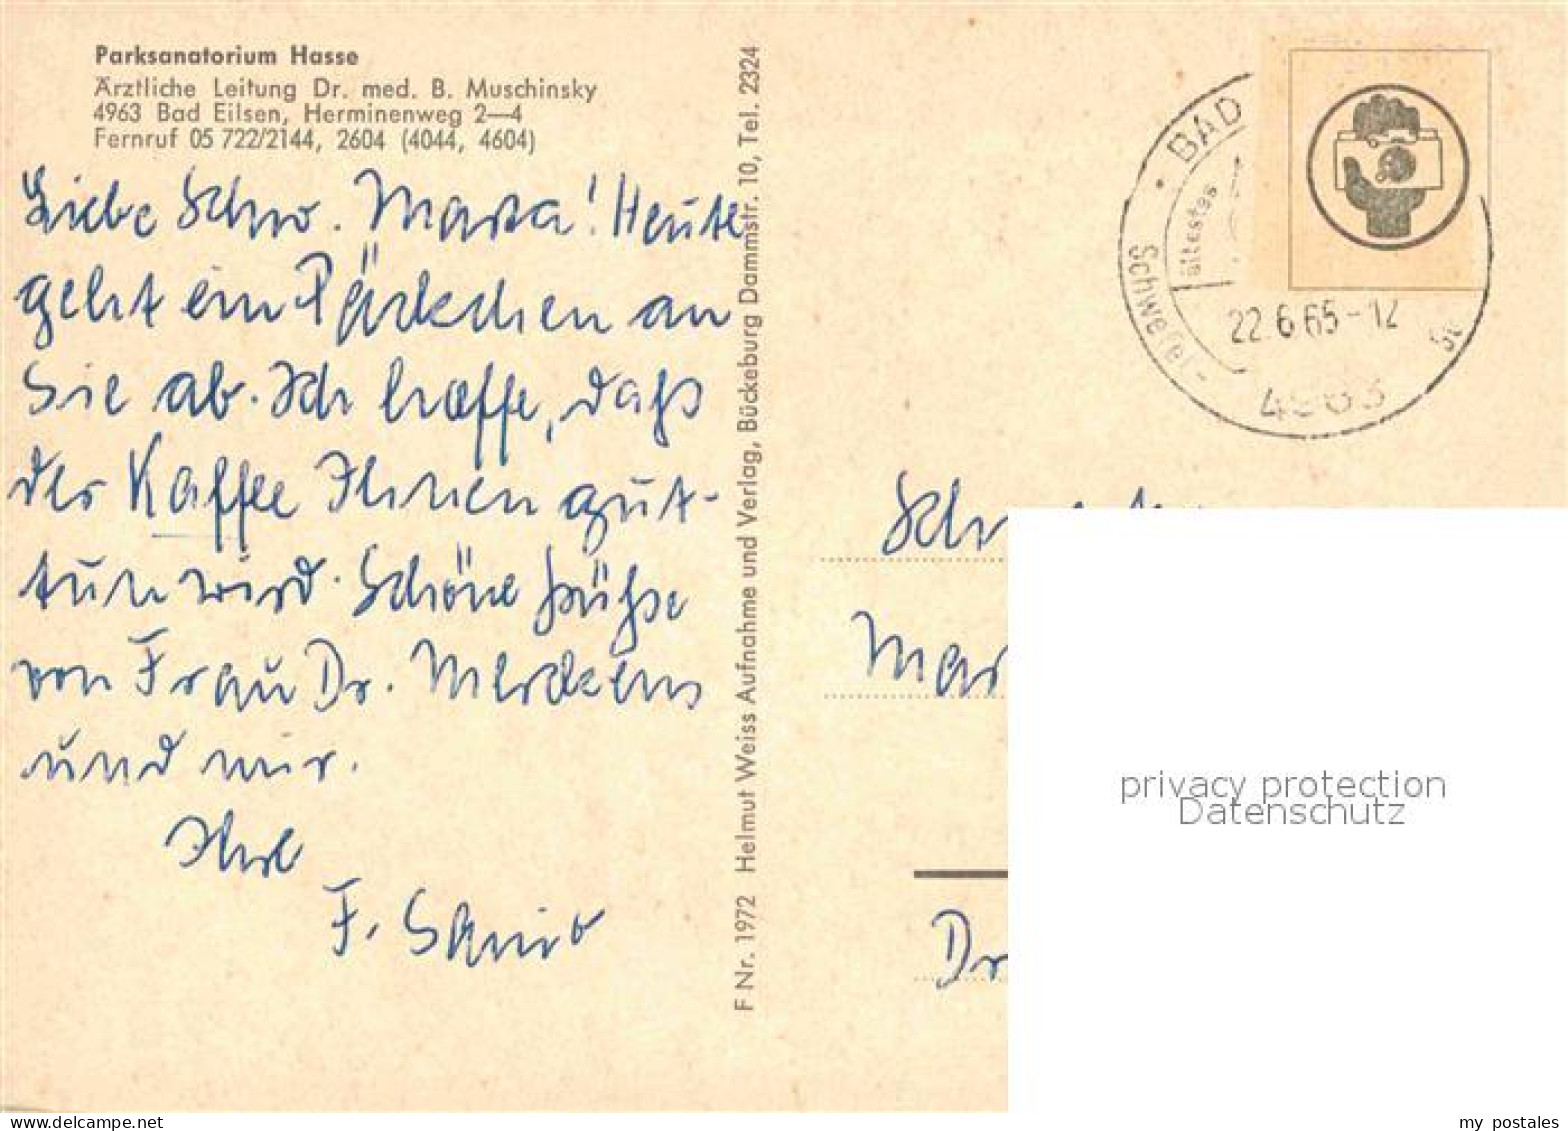 Parksanatorium Hasse
Ärztliche Leitung Dr. med. B. Muschinsky
4963 Bad Eilsen, Herminenweg 2—4
Fernruf 05 722/2144, 2604 (4044, 4604)
Liebe Schw. Marta! Heute
geht ein Päckchen an
Sie ab. Ich hoffe, daß
der Kaffee Ihnen gut-
tun wird. Schöne Grüße
von Frau Dr. Merckens
und mir.
Ihre
F. Sanio
F Nr. 1972 Helmut Weiss Aufnahme und Verlag, Bückeburg Dammstr. 10, Tel. 2324
BAD
ältestes
Schwefel-
22.6.65-12
4963
Schw
Mar
Dr
privacy protection
Datenschutz
www.delcampe.net
my_postales